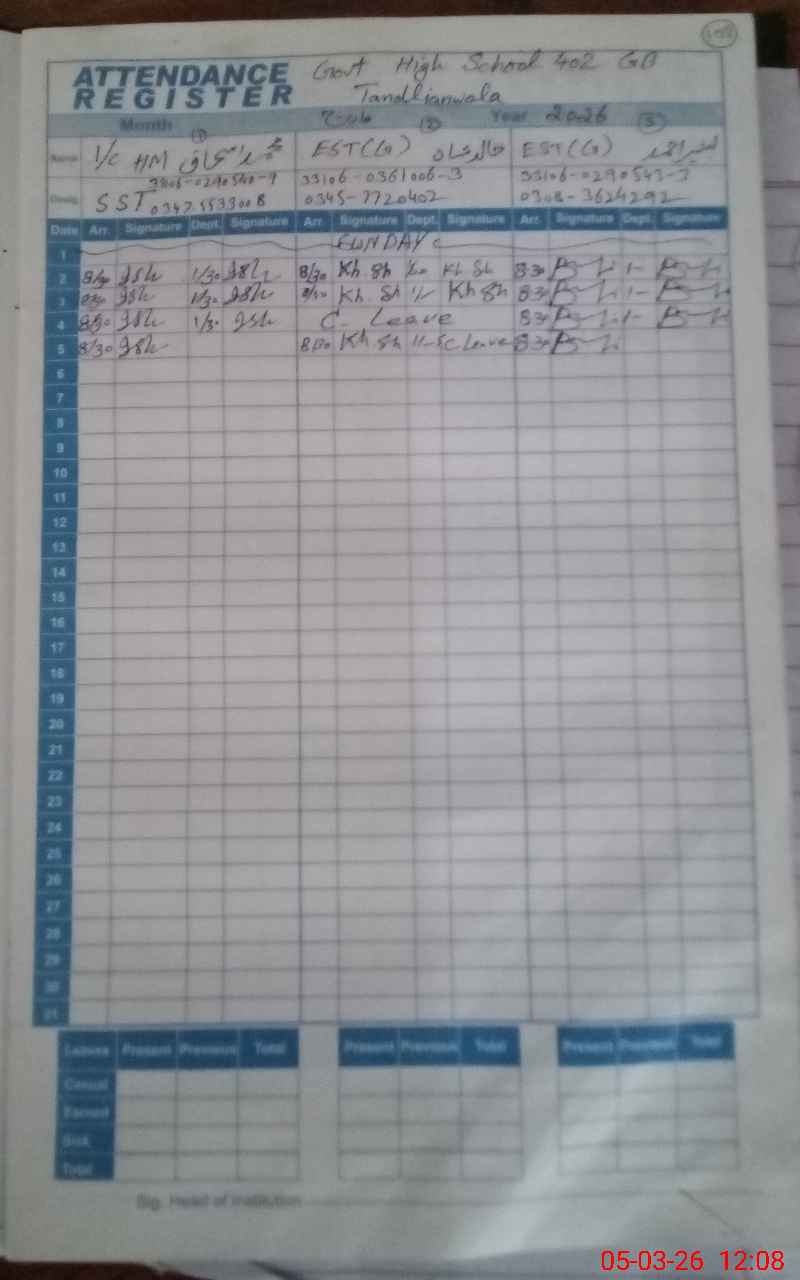 ATTENDANCE REGISTER
Govt High School 402 GB
Tandlianwala
Month مارچ Year 2026
Name 1/C HM محمد اسحاق (1) EST(G) خالد شاہ (2) EST(G) (3)
33106-0290540-9 33106-0361006-3 33106-0290543-7
Desig. SST 0347 5533008 0345-7720402 0308-3624292
Date Arr. Signature Dept. Signature Arr. Signature Dept. Signature Arr. Signature Dept. Signature
1 SUNDAY
2 8/30 1/30 8/30 Kh. Sh Kh Sh 8 30 1-
3 8/30 1/30 Kh. Sh Kh Sh 8 30 1-
4 8/30 1/30 C. Leave 8 30 1-
5 8/30 8/30 Kh. Sh C Leave 8 30
6
7
8
9
10
11
12
13
14
15
16
17
18
19
20
21
22
23
24
25
26
27
28
29
30
31
Leaves Present Previous Total Present Previous Total Present Previous Total
Casual
Earned
Sick
Total
Sig. Head of Institution
05-03-26 12:08